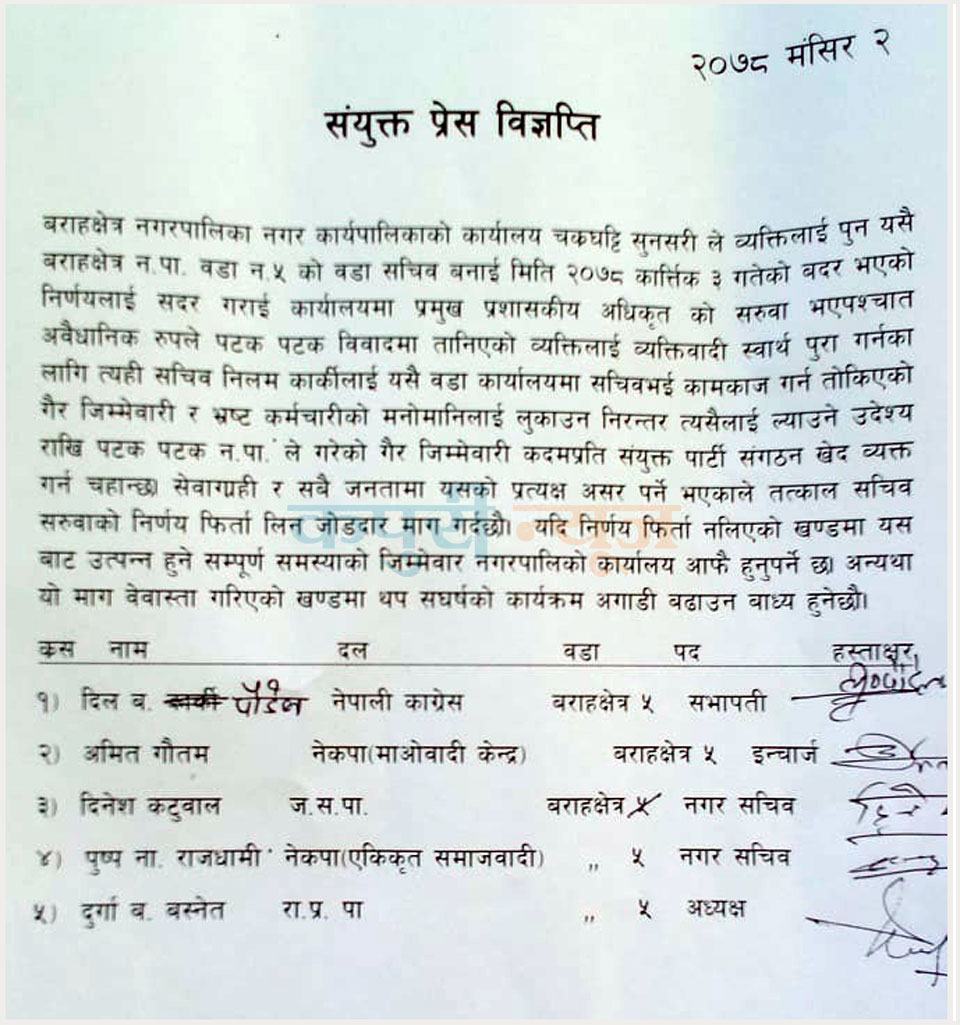 २०७८ मंसिर २
संयुक्त प्रेस विज्ञप्ति
बराहक्षेत्र नगरपालिका नगर कार्यपालिकाको कार्यालय चकघट्टि सुनसरी ले व्यक्तिलाई पुन यसै
बराहक्षेत्र न.पा. वडा न.५ को वडा सचिव बनाई मिति २०७८ कार्त्तिक ३ गतेको बदर भएको
निर्णयलाई सदर गराई कार्यालयमा प्रमुख प्रशासकीय अधिकृत को सरुवा भएपश्चात
अवैधानिक रुपले पटक पटक विवादमा तानिएको व्यक्तिलाई व्यक्तिवादी स्वार्थ पुरा गर्नका
लागि त्यही सचिव निलम कार्कीलाई यसै वडा कार्यालयमा सचिवभई कामकाज गर्न तोकिएको
गैर जिम्मेवारी र भ्रष्ट कर्मचारीको मनोमानिलाई लुकाउन निरन्तर त्यसैलाई ल्याउने उदेश्य
राखि पटक पटक न.पा. ले गरेको गैर जिम्मेवारी कदमप्रति संयुक्त पार्टी संगठन खेद व्यक्त
गर्न चहान्छ। सेवाग्राही र सबै जनतामा यसको प्रत्यक्ष असर पर्ने भएकाले तत्काल सचिव
सरुवाको निर्णय फिर्ता लिन जोडदार माग गर्दछौ। यदि निर्णय फिर्ता नलिएको खण्डमा यस
बाट उत्पन्न हुने सम्पूर्ण समस्याको जिम्मेवार नगरपालिको कार्यालय आफै हुनुपर्ने छ। अन्यथा
यो माग वेवास्ता गरिएको खण्डमा थप सघर्षको कार्यक्रम अगाडी बढाउन बाध्य हुनेछौ।
क्रस नाम दल वडा पद हस्ताक्षर
१) दिल ब. पौडेल नेपाली काग्रेस बराहक्षेत्र ५ सभापती
२) अमित गौतम नेकपा(माओवादी केन्द्र) बराहक्षेत्र ५ इन्चार्ज
३) दिनेश कटुवाल ज.स.पा. बराहक्षेत्र ५ नगर सचिव
४) पुष्प ना. राजधामी नेकपा(एकिकृत समाजवादी) ,, ५ नगर सचिव
५) दुर्गा ब. बस्नेत रा.प्र. पा ,, ५ अध्यक्ष